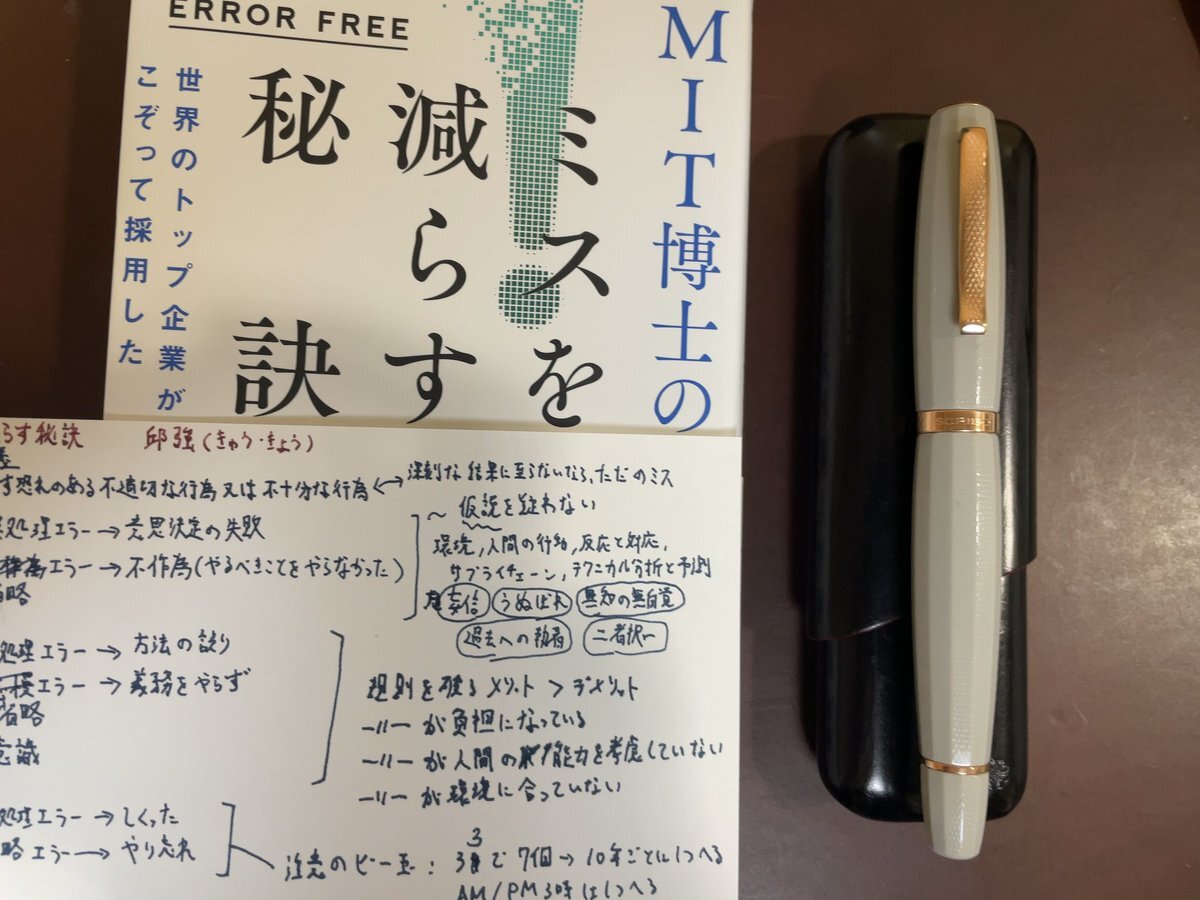 ERROR FREE
MIT博士の
ミスを
減らす
秘訣
世界のトップ企業が
こぞって採用した
らす秘訣 邱強(きゅう・きょう)
す恐れのある不適切な行為又は不十分な行為↔深刻な結果に至らないなら、ただのミス
処理エラー→意思決定の失敗
エラー→不作為(やるべきことをやらなかった)
省略
〜仮説を疑わない
環境,人間の行動,反応と対応,
サプライチェーン,テクニカル分析と予測
妄信 うぬぼれ 無知の無自覚
過去への執着 二者択一
処理エラー→方法の誤り
エラー→義務をやらず
省略
意識
規則を破るメリット>デメリット
-〃-が負担になっている
-〃-が人間の能力を考慮していない
-〃-が環境に合っていない
処理エラー→しくった
略エラー→やり忘れ
注意のビー玉:3で7個→10年ごとに1つへる
AM/PM3時は1つへる